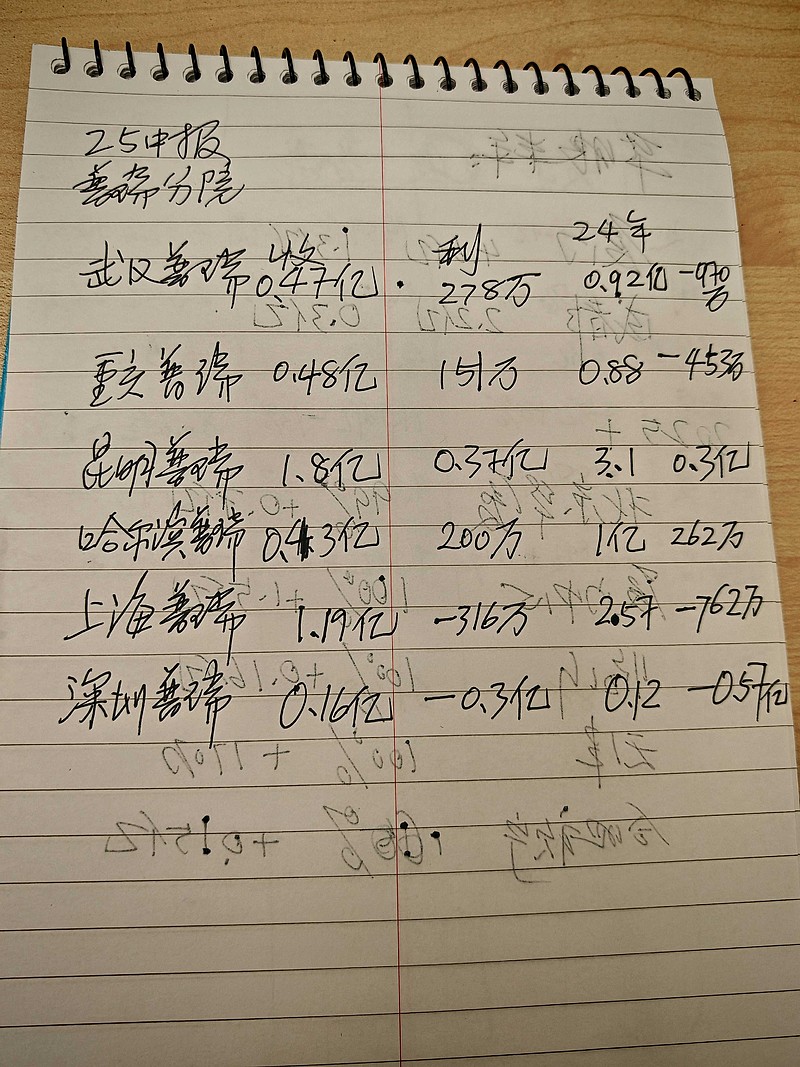 25中报
普瑞分院
24年
收 利
武汉普瑞 0.47亿 278万 0.92亿 -970万
重庆普瑞 0.48亿 151万 0.88 -453万
昆明普瑞 1.8亿 0.37亿 3.1 0.3亿
哈尔滨普瑞 0.43亿 200万 1亿 262万
上海普瑞 1.19亿 -316万 2.57 -762万
深圳普瑞 0.16亿 -0.3亿 0.12 -0.57亿